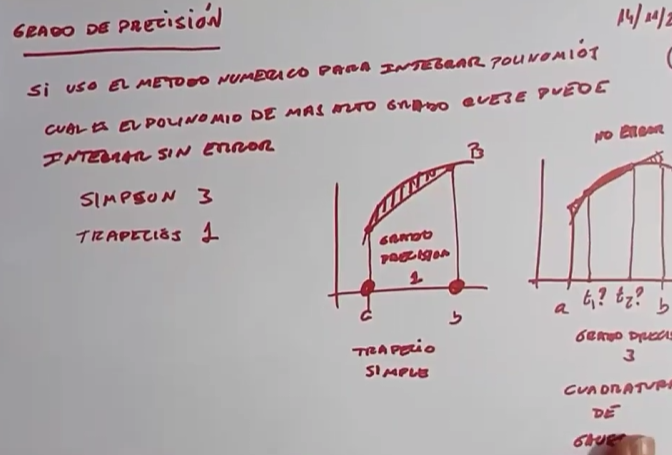 GRADO DE PRECISIÓN
14/11/2
SI USO EL METODO NUMERICO PARA INTEGRAR POLINOMIOS
CUAL ES EL POLINOMIO DE MAS ALTO GRADO QUE SE PUEDE
INTEGRAR SIN ERROR
SIMPSON 3
TRAPECIOS 1
B
GRADO
PRECISION
1
a b
TRAPECIO
SIMPLE
NO ERROR
a t₁? t₂? b
GRADO PRECIS
3
CUADRATURA
DE
GAUSS